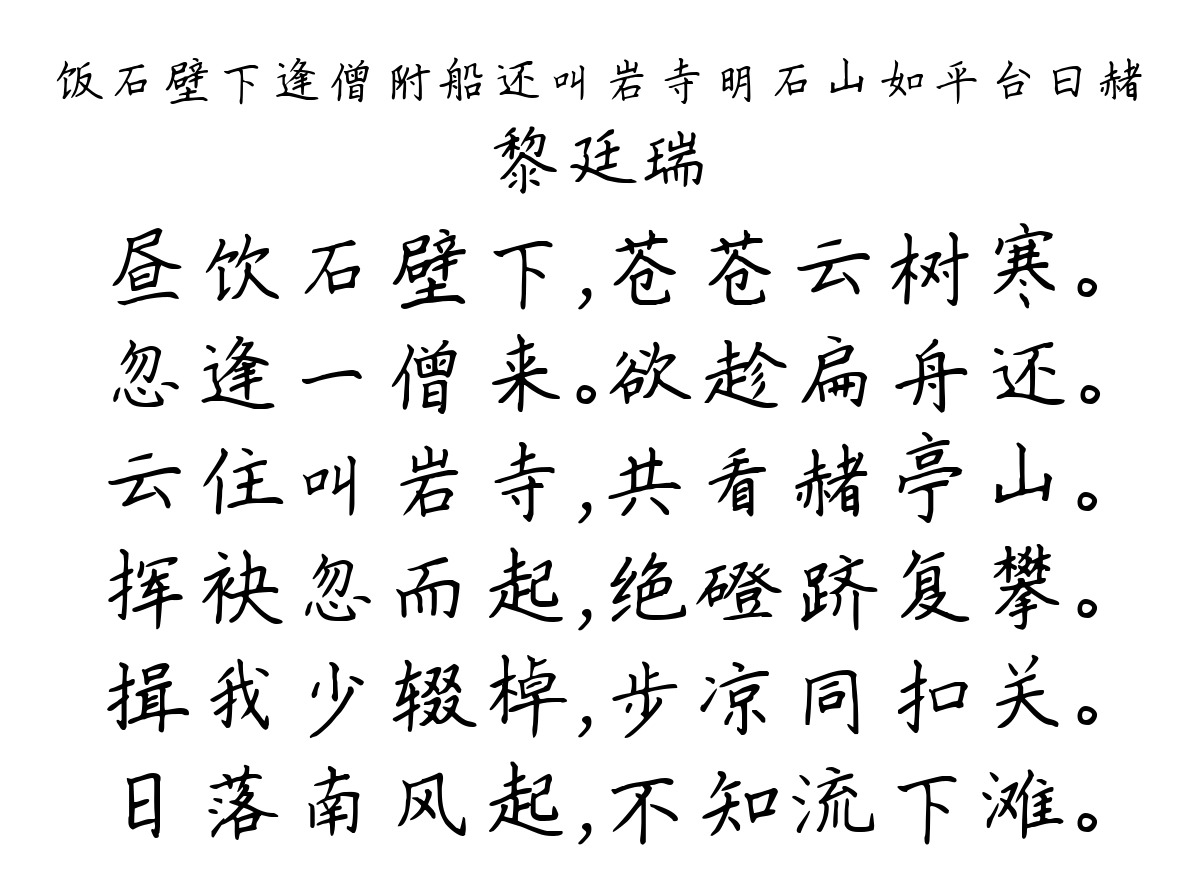 饭石壁下逢僧附船还叫岩寺明石山如平台曰赭
黎廷瑞
昼饮石壁下,苍苍云树寒。
忽逢一僧来。欲趁扁舟还。
云住叫岩寺,共看赭亭山。
挥袂忽而起,绝磴跻复攀。
揖我少辍棹,步凉同扣关。
日落南风起,不知流下滩。